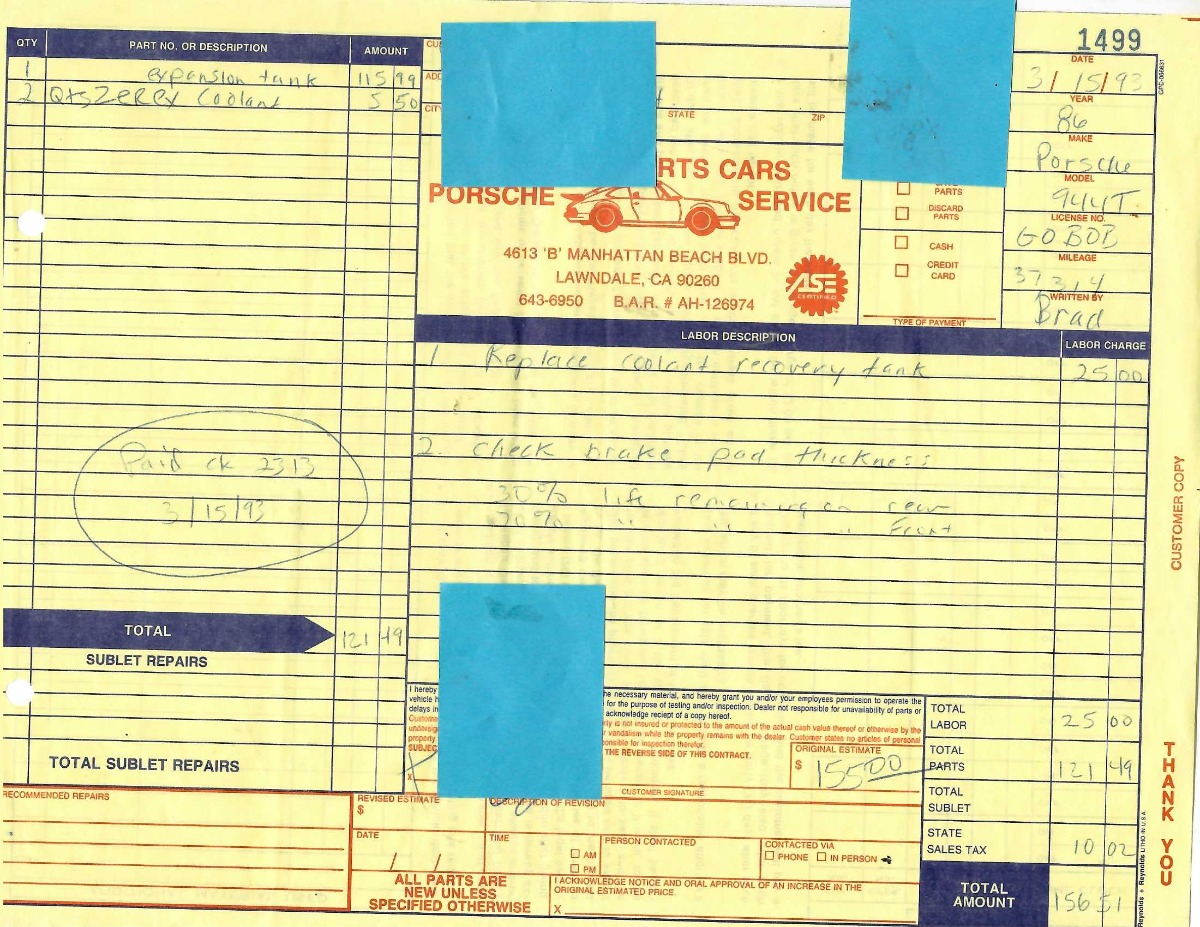 1499
QTY PART NO. OR DESCRIPTION AMOUNT
1 expansion tank 115 99
2 Qts Zerex Coolant 5 50
Paid ck 2313
3/15/93
TOTAL 121 49
SUBLET REPAIRS
TOTAL SUBLET REPAIRS
STATE ZIP
RTS CARS
PORSCHE SERVICE
4613 'B' MANHATTAN BEACH BLVD.
LAWNDALE, CA 90260
643-6950 B.A.R. # AH-126974
ASE
CERTIFIED
PARTS
DISCARD
PARTS
CASH
CREDIT
CARD
TYPE OF PAYMENT
DATE
3/15/93
YEAR
86
MAKE
Porsche
MODEL
944T
LICENSE NO.
GO BOB
MILEAGE
37,314
WRITTEN BY
Brad
LABOR DESCRIPTION LABOR CHARGE
1 Replace coolant recovery tank 25 00
2. check brake pad thickness
30% life remaining on rear
70% " " " Front
I hereby
necessary material, and hereby grant you and/or your employees permission to operate the
vehicle
for the purpose of testing and/or inspection. Dealer not responsible for unavailability of parts or
delays in
acknowledge reciept of a copy hereof.
is not insured or protected to the amount of the actual cash value thereof or otherwise by the
vandalism while the property remains with the dealer. Customer states no articles of personal
property
for inspection therefor.
THE REVERSE SIDE OF THIS CONTRACT.
X
CUSTOMER SIGNATURE
ORIGINAL ESTIMATE
$ 155 00
TOTAL
LABOR 25 00
TOTAL
PARTS 121 49
TOTAL
SUBLET
STATE
SALES TAX 10 02
TOTAL
AMOUNT 156 51
RECOMMENDED REPAIRS
REVISED ESTIMATE
$
DESCRIPTION OF REVISION
DATE
/ /
TIME
AM
PM
PERSON CONTACTED
CONTACTED VIA
PHONE IN PERSON
ALL PARTS ARE
NEW UNLESS
SPECIFIED OTHERWISE
I ACKNOWLEDGE NOTICE AND ORAL APPROVAL OF AN INCREASE IN THE
ORIGINAL ESTIMATED PRICE.
X
CUSTOMER COPY
THANK YOU
Reynolds + Reynolds LITHO IN U.S.A.